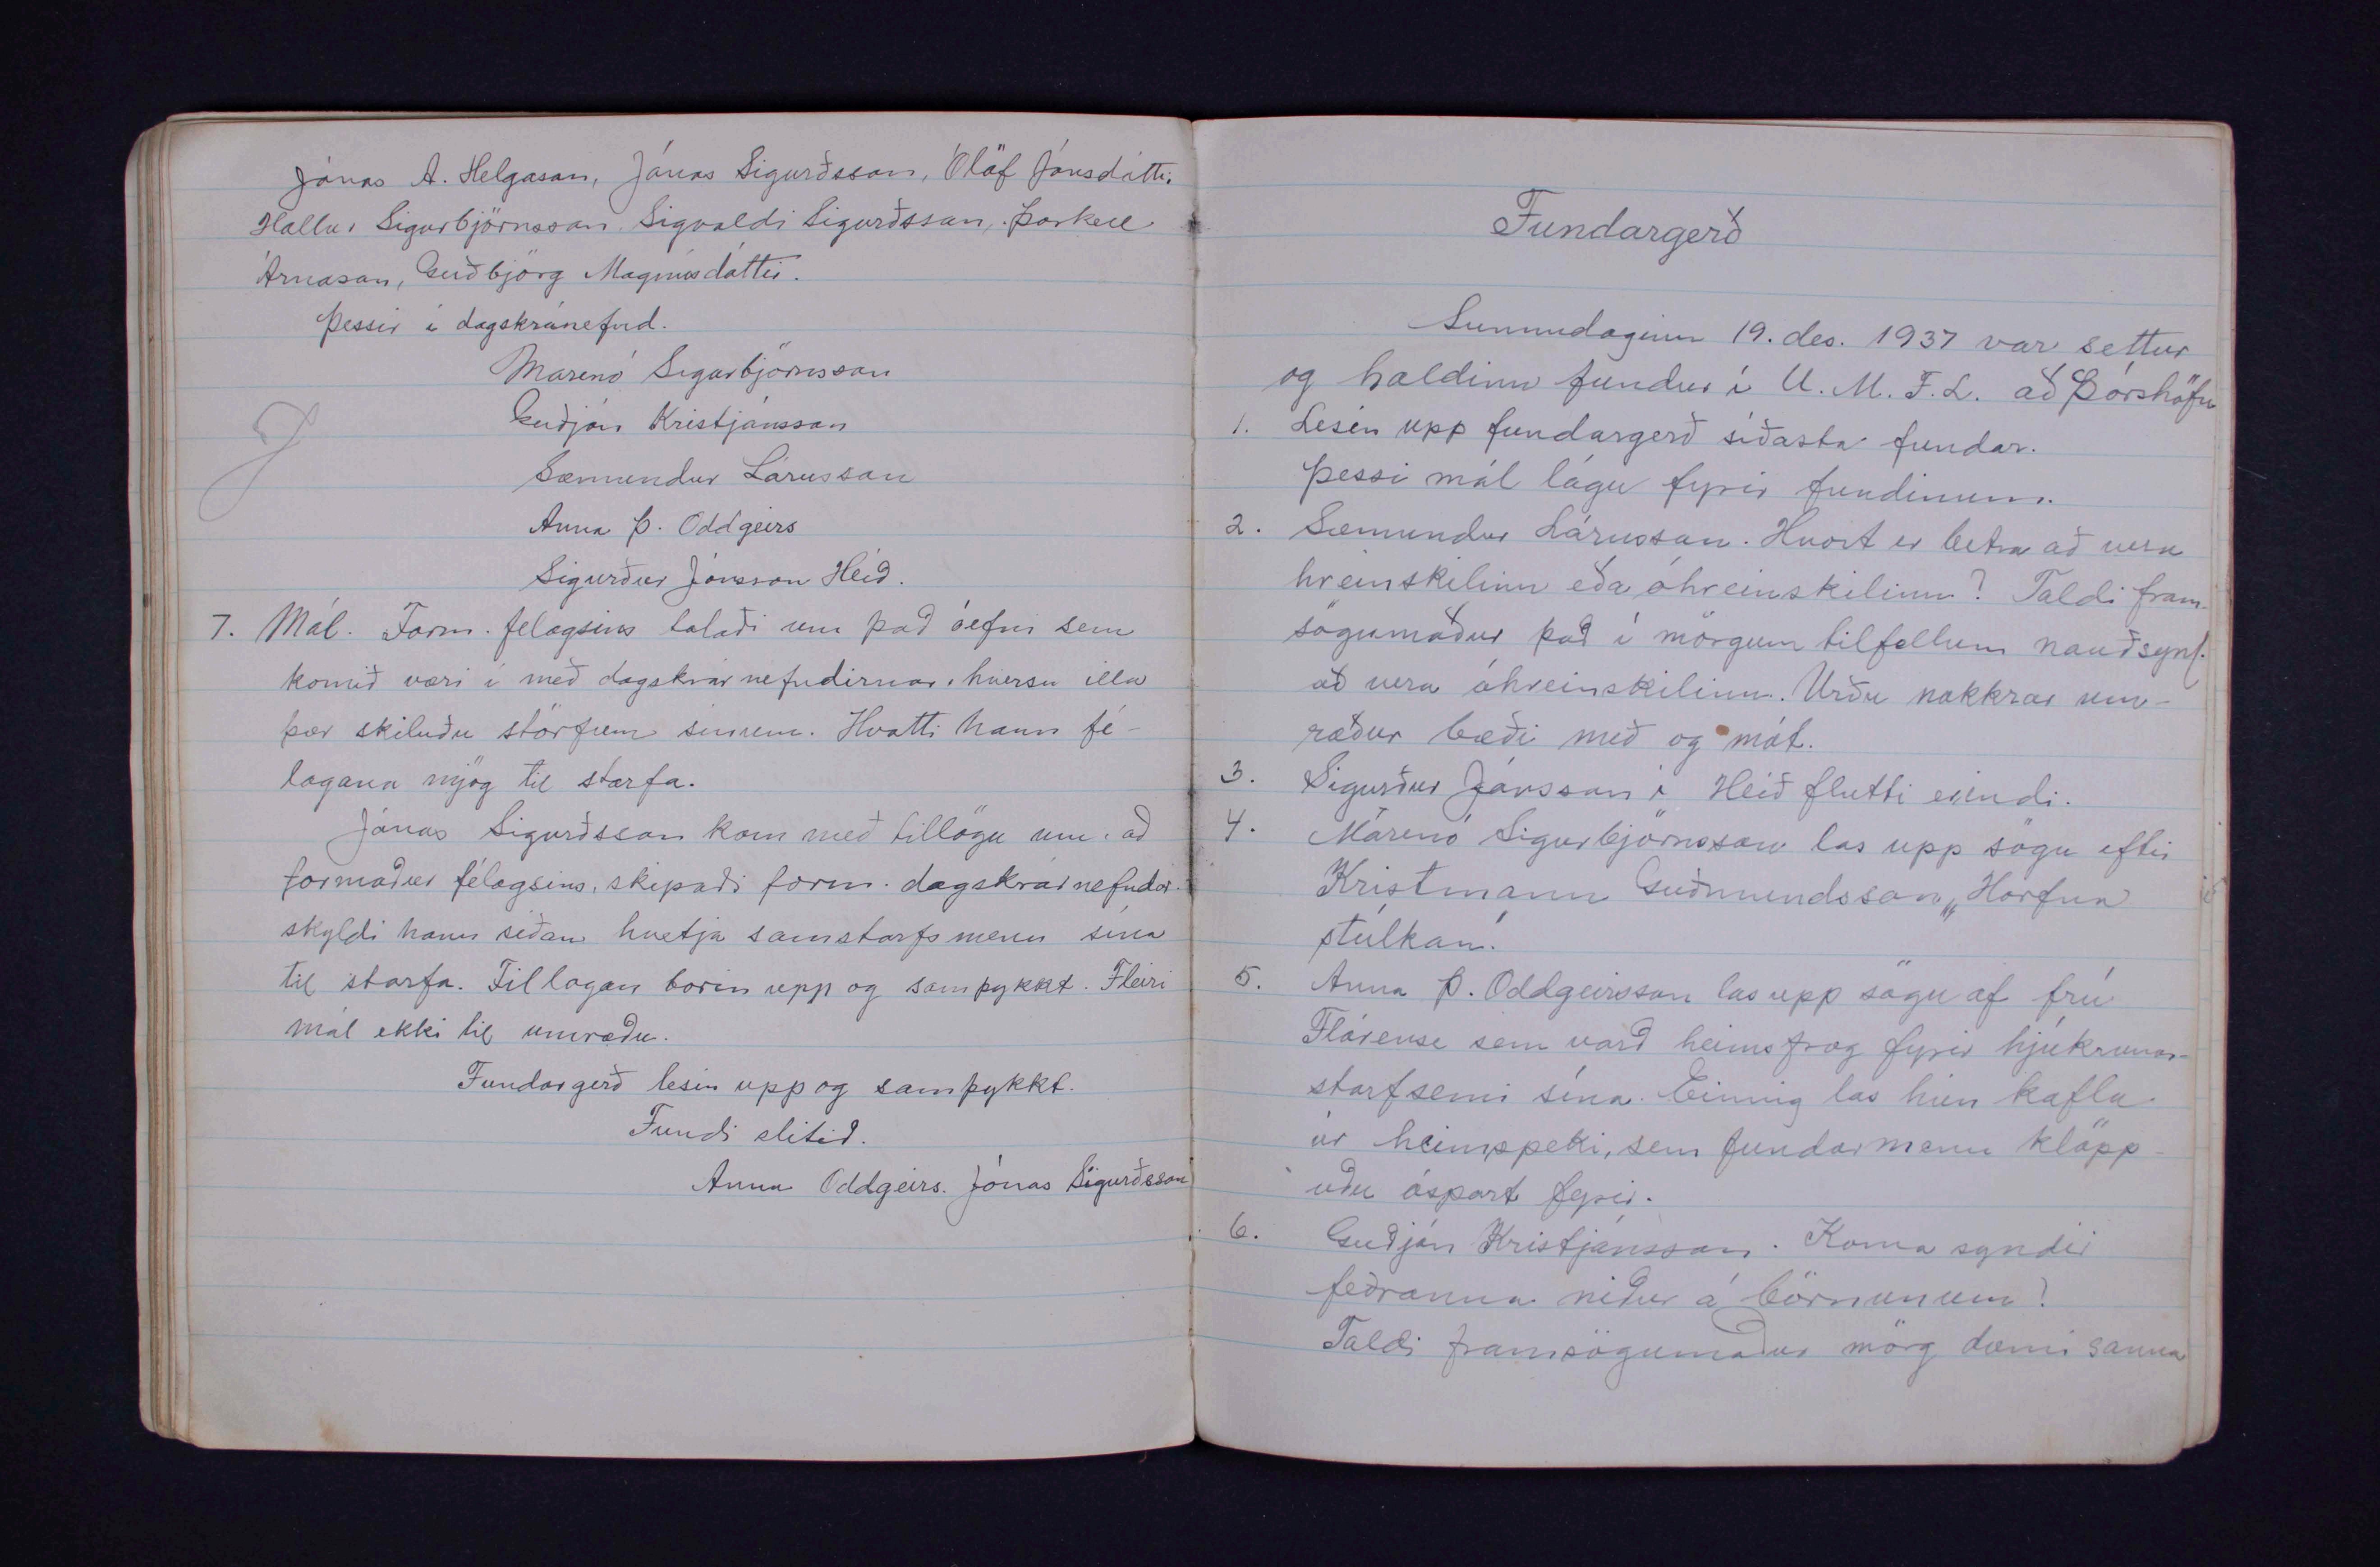 Jónas A. Helgason, Jónas Sigurðsson, Ólöf Jónsdóttir
Hallur Sigurbjörnsson, Sigvaldi Sigurðsson, Þorkell
Árnason, Guðbjörg Magnúsdóttir.
Þessir í dagskránefnd.
Marenó Sigurbjörnsson
Guðjón Kristjánsson
Sæmundur Lárusson
Anna Þ. Oddgeirs
Sigurður Jónsson Heið.
7. Mál. Form. félagsins talaði um það óefni sem
komið væri í með dagskrár nefndirnar, hversu illa
þær skiluðu störfum sínum. Hvatti hann fé-
lagana mjög til starfa.
Jónas Sigurðsson kom með tillögu um, að
formaður félagsins, skipaði form. dagskrárnefndar
skyldi hann síðan hvetja samstarfsmenn sína
til starfa. Tillagan borin upp og samþykkt. Fleiri
mál ekki til umræðu.
Fundargerð lesin upp og samþykkt.
Fundi slitið.
Anna Oddgeirs. Jónas Sigurðsson
Fundargerð
Sunnudaginn 19. des. 1937 var settur
og haldinn fundur í U. M. F. L. að Þórshöfn
1. Lesin upp fundargerð síðasta fundar.
Þessi mál lágu fyrir fundinum.
2. Sæmundur Lárusson. Hvort er betra að vera
hreinskilinn eða óhreinskilinn? Taldi fram-
sögumaður það í mörgum tilfellum nauðsynl.
að vera óhreinskilinn. Urðu nokkrar um-
ræður bæði með og mót.
3. Sigurður Jónsson í Heið flutti erindi.
4. Márenó Sigurbjörnsson las upp sögu eftir
Kristmann Guðmundsson, „Horfna
stúlkan".
5. Anna Þ. Oddgeirsson las upp sögu af frú
Flórense sem varð heimsfræg fyrir hjúkrunar-
starfsemi sína. Einnig las hún kafla
úr heimspeki, sem fundarmenn klöpp-
uðu óspart fyrir.
6. Guðjón Kristjánsson. Koma syndir
feðranna niður á börnunum?
Taldi framsögumaður mörg dæmi sanna